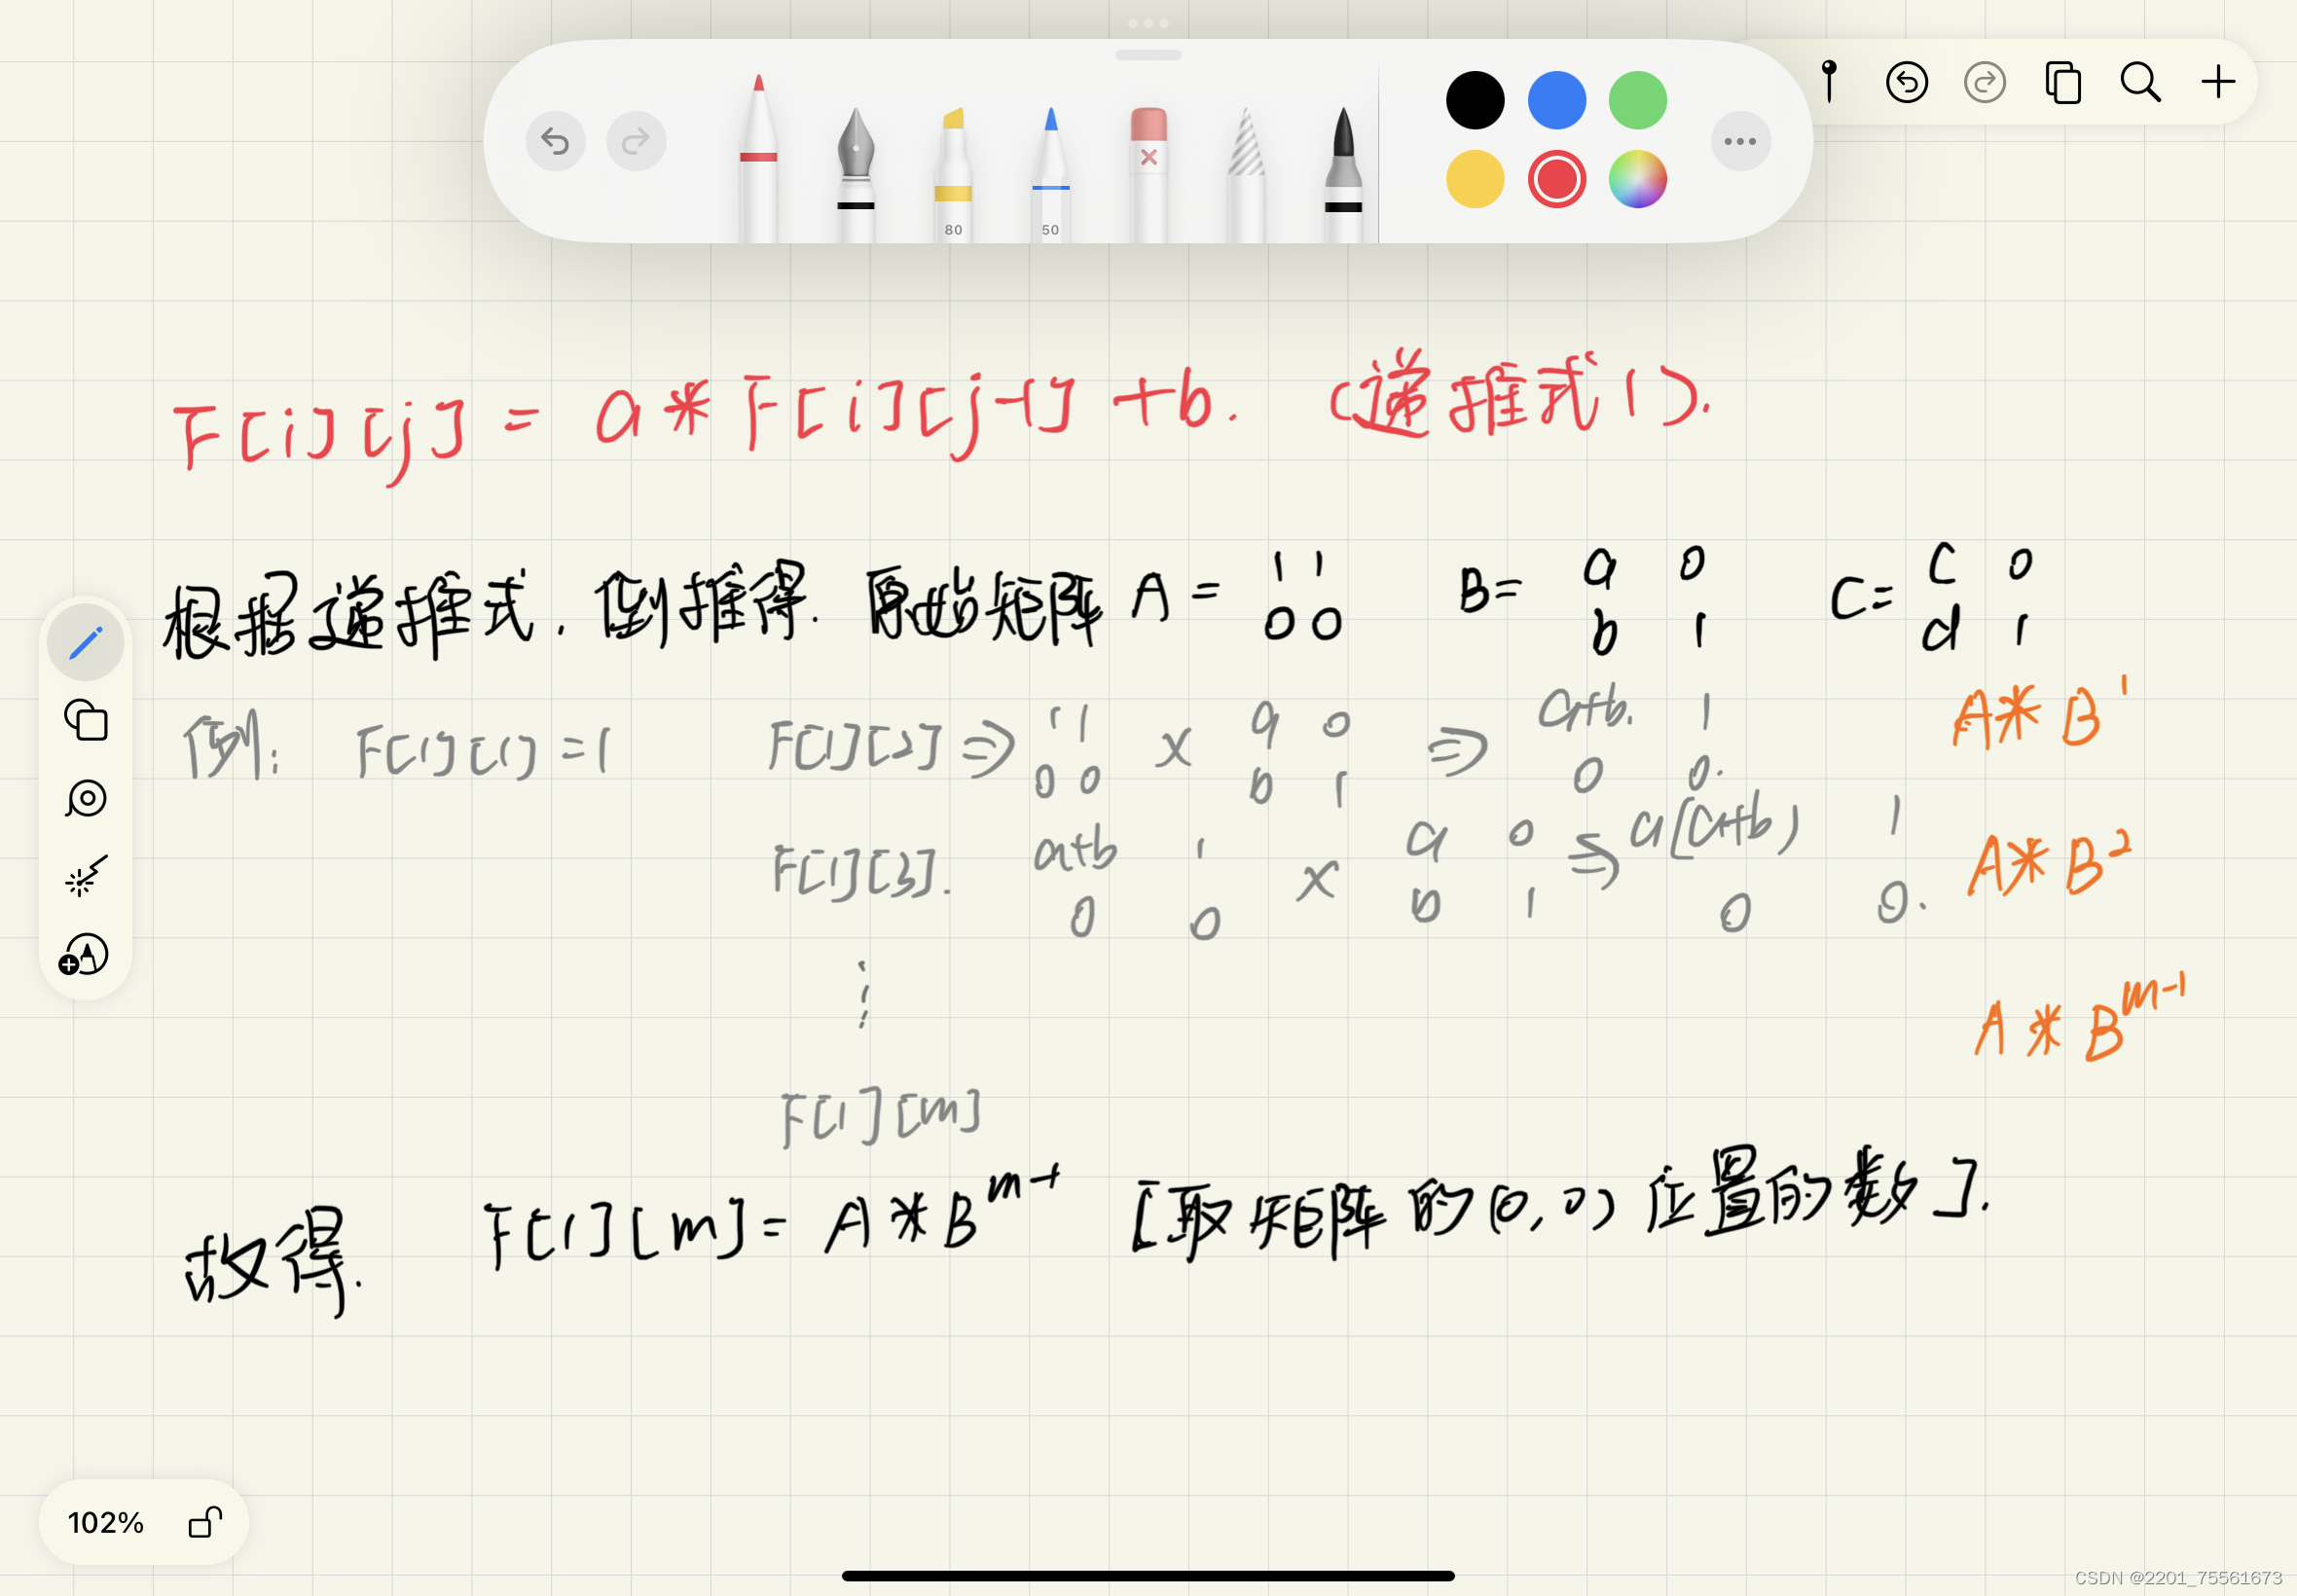 80
50
F[i][j] = a * F[i][j-1] + b. (递推式1).
根据递推式.倒推得.原始矩阵 A = 1 1 B= a 0 C= c 0
0 0 b 1 d 1
例: F[1][1] = 1 F[1][2] ⇒ 1 1 × a 0 ⇒ a+b. 1 A * B^1
0 0 b 1 0 0.
F[1][3]. a+b 1 × a 0 ⇒ a(a+b) 1 A * B^2
0 0 b 1 0 0.
⋮
A * B^m-1
F[1][m]
故得. F[1][m] = A * B^m-1 [取矩阵的(0,0)位置的数].
102%
CSDN @2201_75561673